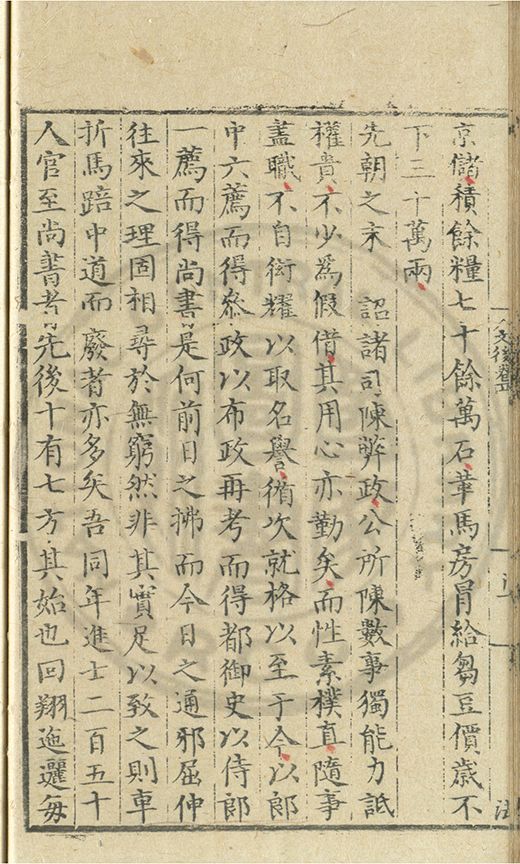 京儲積餘糧七十餘萬石革馬房冒給芻豆價歲不
下三十萬兩
先朝之末 詔諸司陳弊政公所陳數事獨能力詆
權貴不少為假借其用心亦勤矣而性素樸直隨事
盖職不自衒耀以取名譽循次就格以至于今以郎
中六薦而得叅政以布政再考而得都御史以侍郎
一薦而得尚書是何前日之拂而今日之通邪屈伸
往來之理固相尋於無窮然非其實足以致之則車
折馬踣中道而廢者亦多矣吾同年進士二百五十
人官至尚書者先後十有七方其始也回翔迤邐每